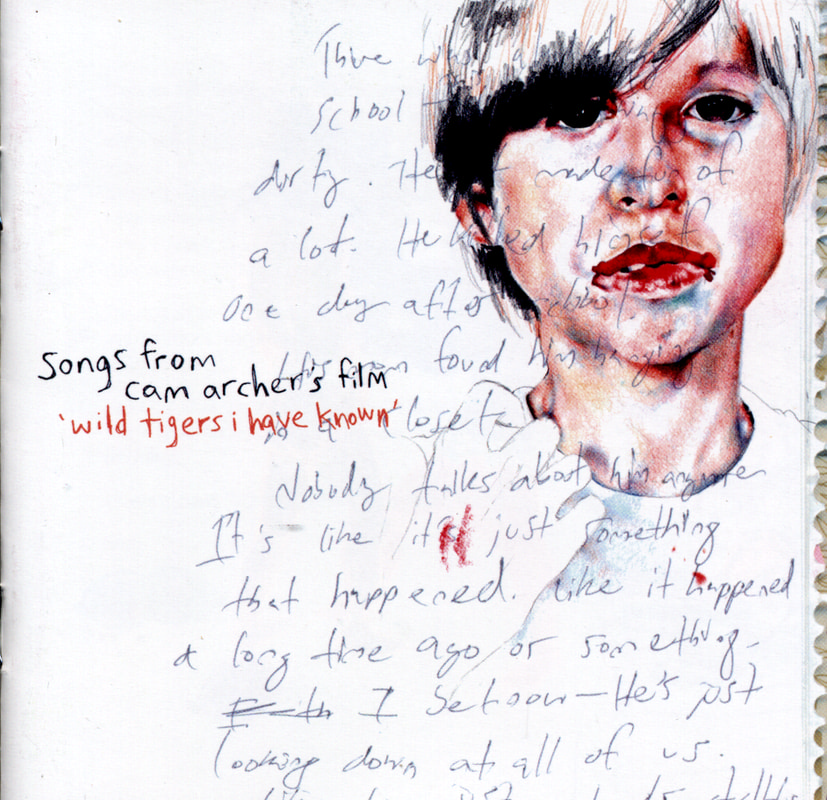 There was a
school
dirty. He made fun of
a lot. He killed himself
one day after school.
His mom found him hanging
songs from
cam archer's film
'wild tigers i have known'
in a closet.
Nobody talks about him anymore
It's like it's just something
that happened. Like it happened
a long time ago or something.
I He's just
looking down at all of us.